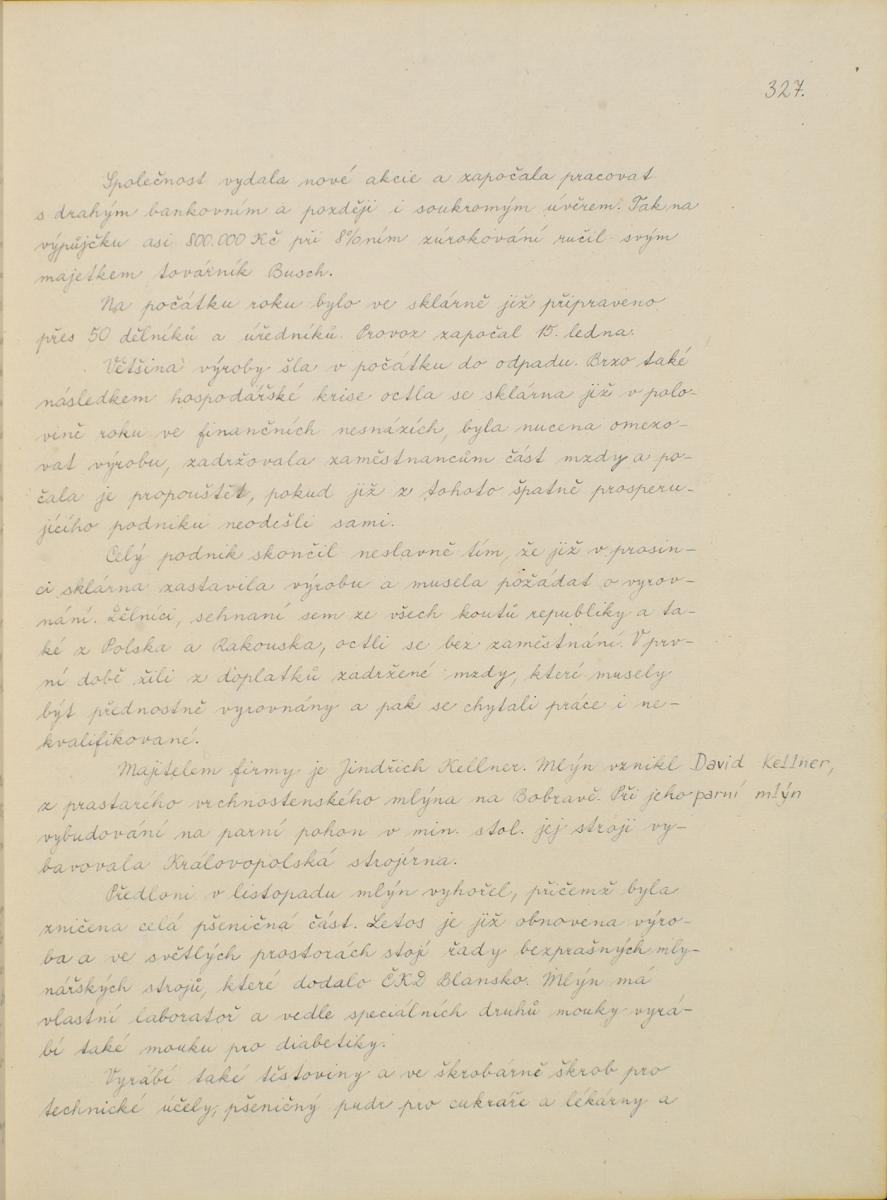 327.
Společnost vydala nové akcie a započala pracovat
s drahým bankovním a později i soukromým úvěrem. Tak na
výpůjčku asi 800.000 Kč při 8%ním zúrokování ručil svým
majetkem továrník Busch.
Na počátku roku bylo ve sklárně již připraveno
přes 50 dělníků a úředníků. Provoz započal 15. ledna.
Většina výroby šla v počátku do odpadu. Brzo také
následkem hospodářské krise octla se sklárna již v polo-
vině roku ve finančních nesnázích, byla nucena omezo-
vat výrobu, zadržovala zaměstnancům část mzdy a po-
čala je propouštět, pokud již z tohoto špatně prosperu-
jícího podniku neodešli sami.
Celý podnik skončil neslavně tím, že již v prosin-
ci sklárna zastavila výrobu a musela požádat o vyrov-
nání. Dělníci, sehnaní sem ze všech koutů republiky a ta-
ké z Polska a Rakouska, octli se bez zaměstnání. V prv-
ní době žili z doplatků zadržené mzdy, které musely
být přednostně vyrovnány a pak se chytali práce i ne-
kvalifikované.
Majitelem firmy je Jindřich Kellner. Mlýn vznikl David Kellner,
z prastarého vrchnostenského mlýna na Bobravě. Při jeho parní mlýn
vybudování na parní pohon v min. stol. jej stroji vy-
bavovala Královopolská strojírna.
Předloni v listopadu mlýn vyhořel, přičemž byla
zničena celá pšeničná část. Letos je již obnovena výro-
ba a ve světlých prostorách stojí řady bezprašných mly-
nářských strojů, které dodalo ČKD Blansko. Mlýn má
vlastní laboratoř a vedle speciálních druhů mouky vyrá-
bí také mouku pro diabetiky.
Vyrábí také těstoviny a ve škrobárně škrob pro
technické účely, pšeničný pudr pro cukráře a lékárny a